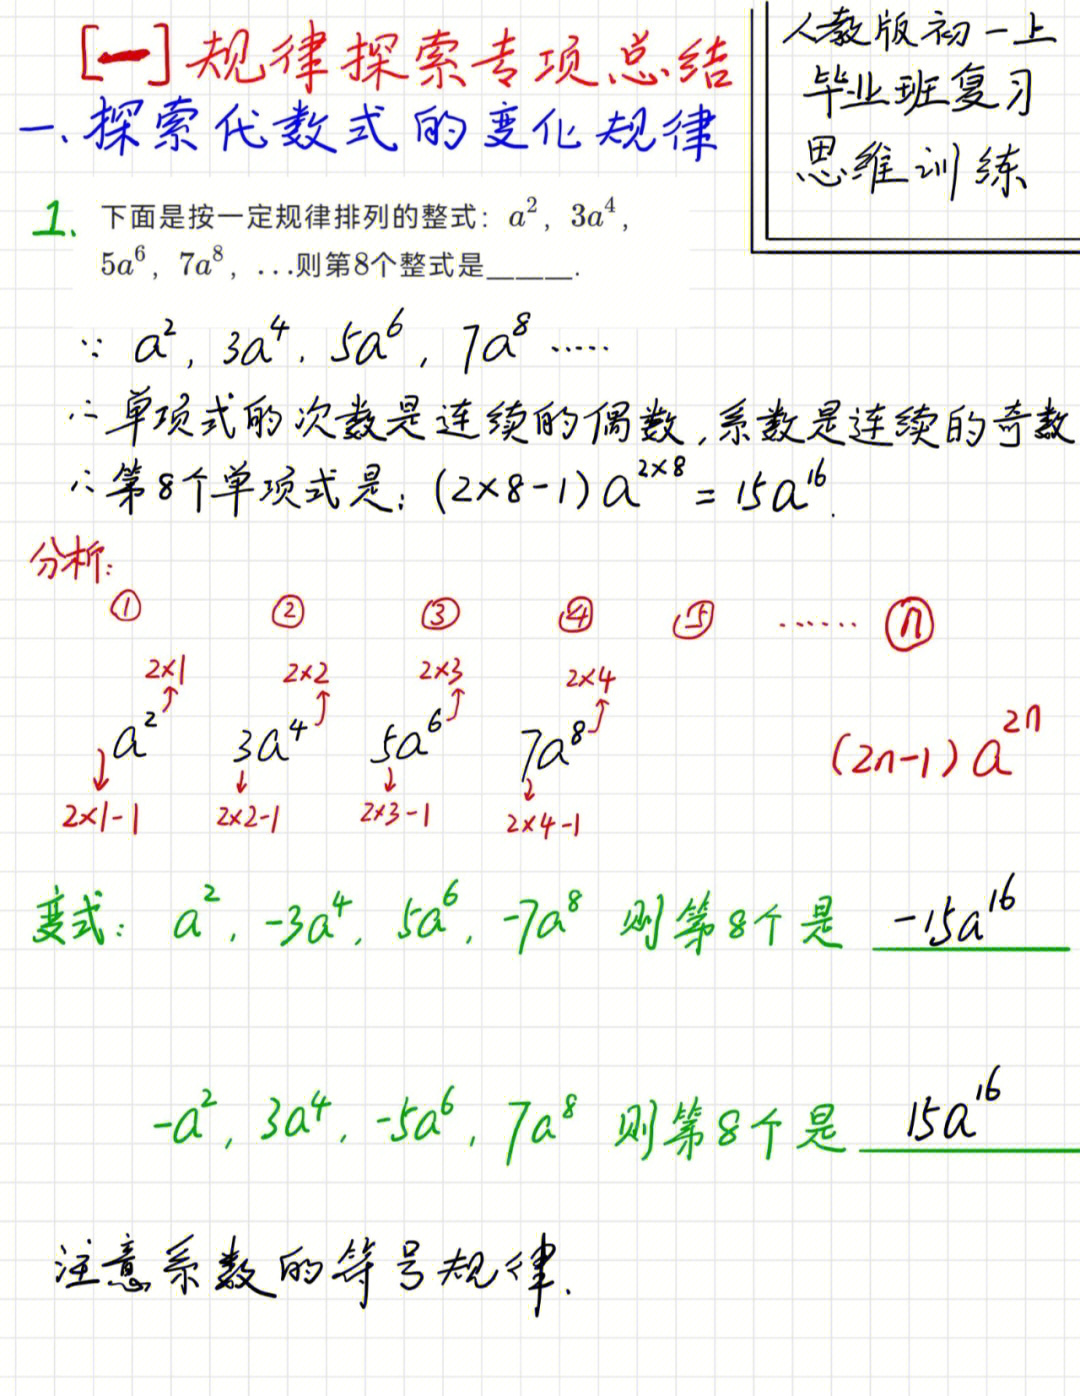 [一]规律探索专项总结
人教版初一上
毕业班复习
思维训练
一、探索代数式的变化规律
1. 下面是按一定规律排列的整式：a²，3a⁴，
5a⁶，7a⁸，…则第8个整式是______.
∵ a², 3a⁴, 5a⁶, 7a⁸ ……
∴ 单项式的次数是连续的偶数,系数是连续的奇数
∴ 第8个单项式是: (2×8-1)a^{2×8} = 15a¹⁶.
分析:
① ② ③ ④ ⑤ …… ⓝ
2×1 2×2 2×3 2×4
a² 3a⁴ 5a⁶ 7a⁸ (2n-1)a²ⁿ
2×1-1 2×2-1 2×3-1 2×4-1
变式: a², -3a⁴, 5a⁶, -7a⁸ 则第8个是 -15a¹⁶
-a², 3a⁴, -5a⁶, 7a⁸ 则第8个是 15a¹⁶
注意系数的符号规律.